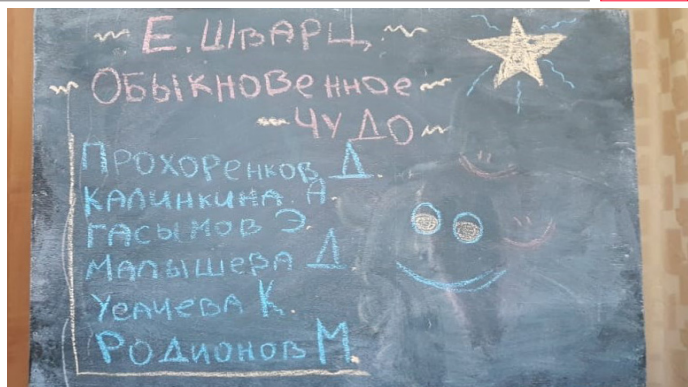 Е. ШВАРЦ,
ОБЫКНОВЕННОЕ
ЧУДО
ПРОХОРЕНКОВ Д.
КАЛИНКИНА А.
ГАСЫМОВ Э.
МАЛЫШЕВА Д.
УСАЧЕВА К.
РОДИОНОВ М.